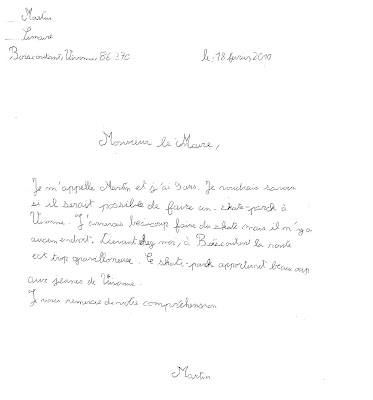 Martin
Lemaire
Boiscoutant, Vivonne, 86370
le, 18 fevrier 2010
Monsieur le Maire,
Je m'appelle Martin et j'ai 9 ans. Je voudrais savoir
si il serait possible de faire un skate-parck à
Vivonne. J'aimerais beaucoup faire du skate mais il n'y a
aucun endroit. Devant chez moi, à Boiscoutant la route
est trop gravilloneuse. Ce skate-parck apporterait beaucoup
aux jeunes de Vivonne.
Je vous remercie de votre compréhension
Martin